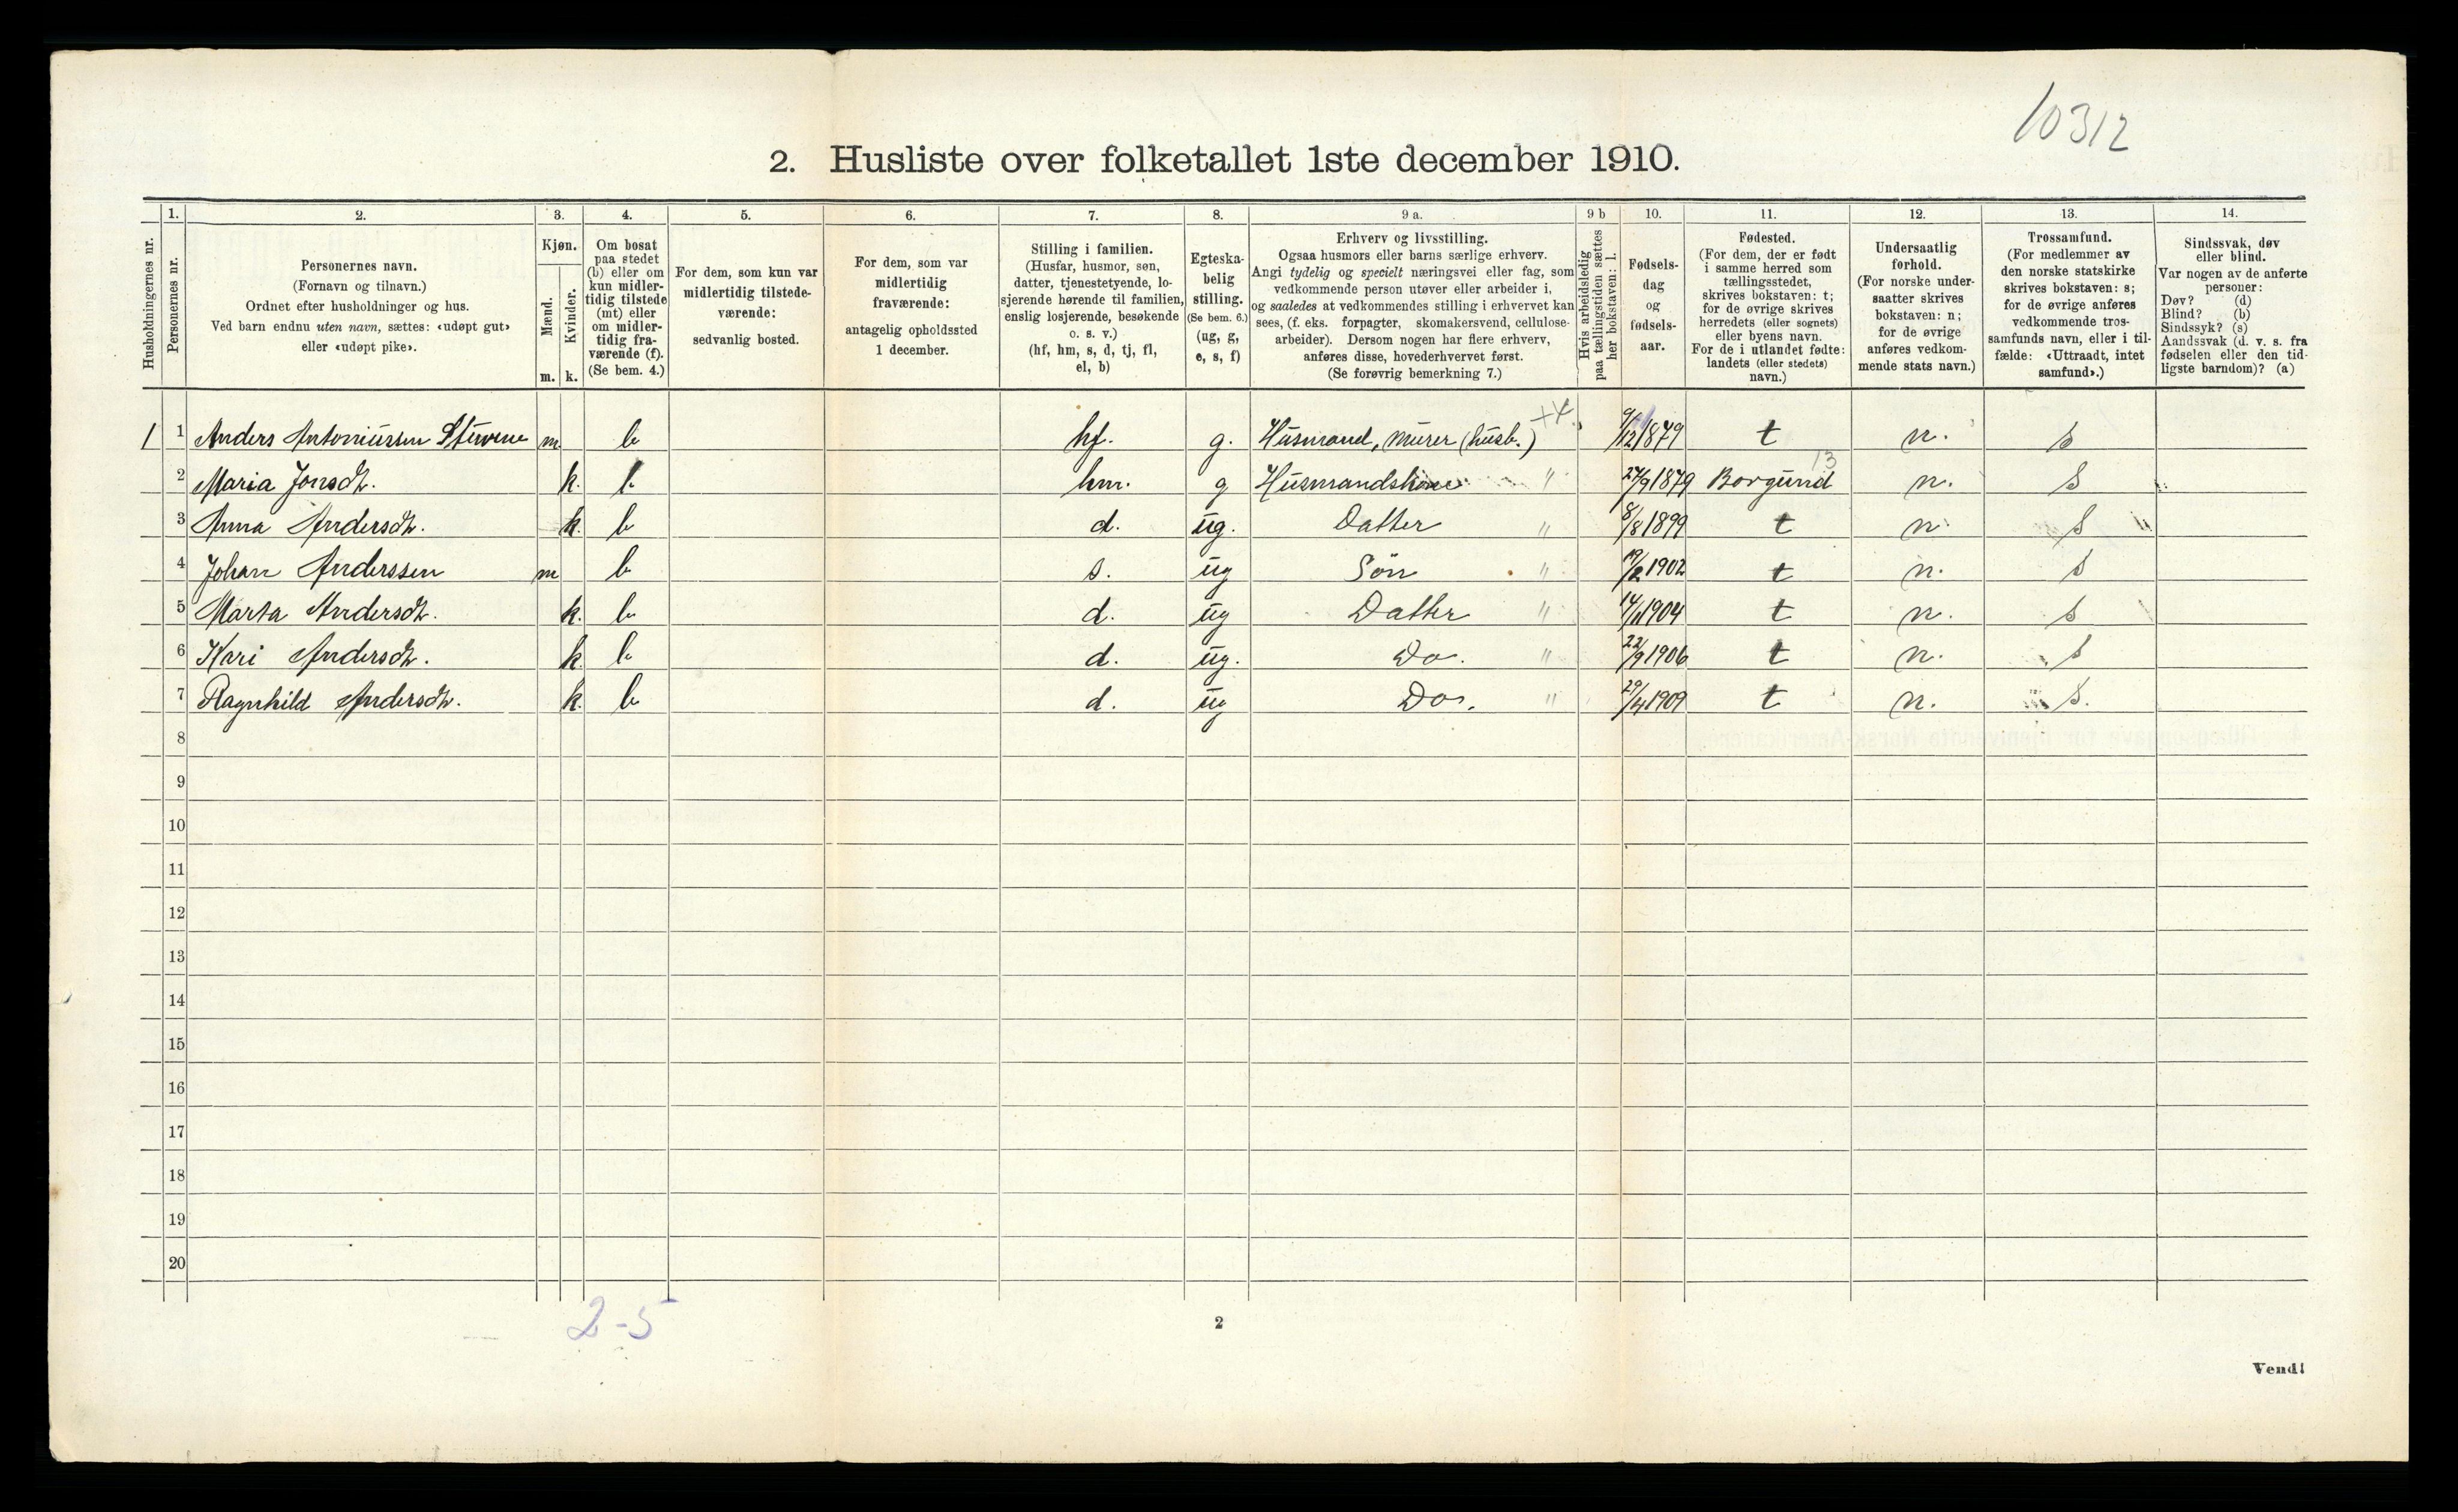 10312
2. Husliste over folketallet 1ste december 1910.
1. 2. 3. 4. 5. 6. 7. 8. 9 a. 9 b 10. 11. 12. 13. 14.
Husholdningernes nr.
Personernes nr.
Personernes navn.
(Fornavn og tilnavn.)
Ordnet efter husholdninger og hus.
Ved barn endnu uten navn, sættes: «udøpt gut»
eller «udøpt pike».
Kjøn.
Mænd.
Kvinder.
m. k.
Om bosat
paa stedet
(b) eller om
kun midler-
tidig tilstede
(mt) eller
om midler-
tidig fra-
værende (f).
(Se bem. 4.)
For dem, som kun var
midlertidig tilstede-
værende:
sedvanlig bosted.
For dem, som var
midlertidig
fraværende:
antagelig opholdssted
1 december.
Stilling i familien.
(Husfar, husmor, søn,
datter, tjenestetyende, lo-
sjerende hørende til familien,
enslig losjerende, besøkende
o. s. v.)
(hf, hm, s, d, tj, fl,
el, b)
Egteska-
belig
stilling.
(Se bem. 6.)
(ug, g,
e, s, f)
Erhverv og livsstilling.
Ogsaa husmors eller barns særlige erhverv.
Angi tydelig og specielt næringsvei eller fag, som
vedkommende person utøver eller arbeider i,
og saaledes at vedkommendes stilling i erhvervet kan
sees, (f. eks. forpagter, skomakersvend, cellulose-
arbeider). Dersom nogen har flere erhverv,
anføres disse, hovederhvervet først.
(Se forøvrig bemerkning 7.)
Hvis arbeidsledig
paa tællingstiden sættes
her bokstaven: l.
Fødsels-
dag
og
fødsels-
aar.
Fødested.
(For dem, der er født
i samme herred som
tællingsstedet,
skrives bokstaven: t;
for de øvrige skrives
herredets (eller sognets)
eller byens navn.
For de i utlandet fødte:
landets (eller stedets)
navn.)
Undersaatlig
forhold.
(For norske under-
saatter skrives
bokstaven: n;
for de øvrige
anføres vedkom-
mende stats navn.)
Trossamfund.
(For medlemmer av
den norske statskirke
skrives bokstaven: s;
for de øvrige anføres
vedkommende tros-
samfunds navn, eller i til-
fælde: «Uttraadt, intet
samfund».)
Sindssvak, døv
eller blind.
Var nogen av de anførte
personer:
Døv? (d)
Blind? (b)
Sindssyk? (s)
Aandssvak (d. v. s. fra
fødselen eller den tid-
ligste barndom)? (a)
1 1 Anders Antoniussen m b hf. g. Husmand, murer (husb.) 9/12 1879 t n. s
2 Maria Jonsdt. k. b hm. g Husmandskone " 27/9 1879 Borgund 13 n. s
3 Anna Andersdt. k. b d. ug. Datter " 8/8 1899 t n s
4 Johan Anderssen m b s. ug Sön " 19/2 1902 t n. s
5 Marta Andersdt. k. b d. ug Datter " 1904 t n. s
6 Kari Andersdt. k. b d. ug. Do. " 22/9 1906 t n. s
7 Ragnhild Andersdt. k. b d. ug Do. " 29/4 1909 t n. s.
8
9
10
11
12
13
14
15
16
17
18
19
20
2-5
2
Vend!